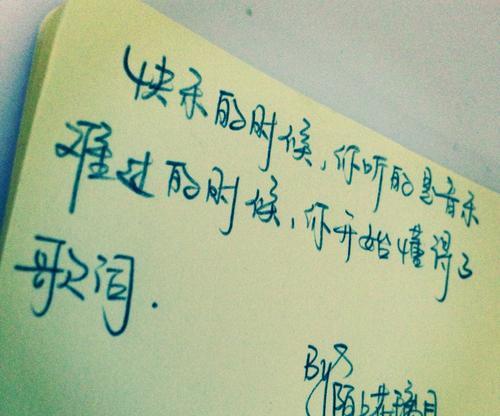 快乐的时候,你听的是音乐
难过的时候,你开始懂得了
歌词.
By
陌上花